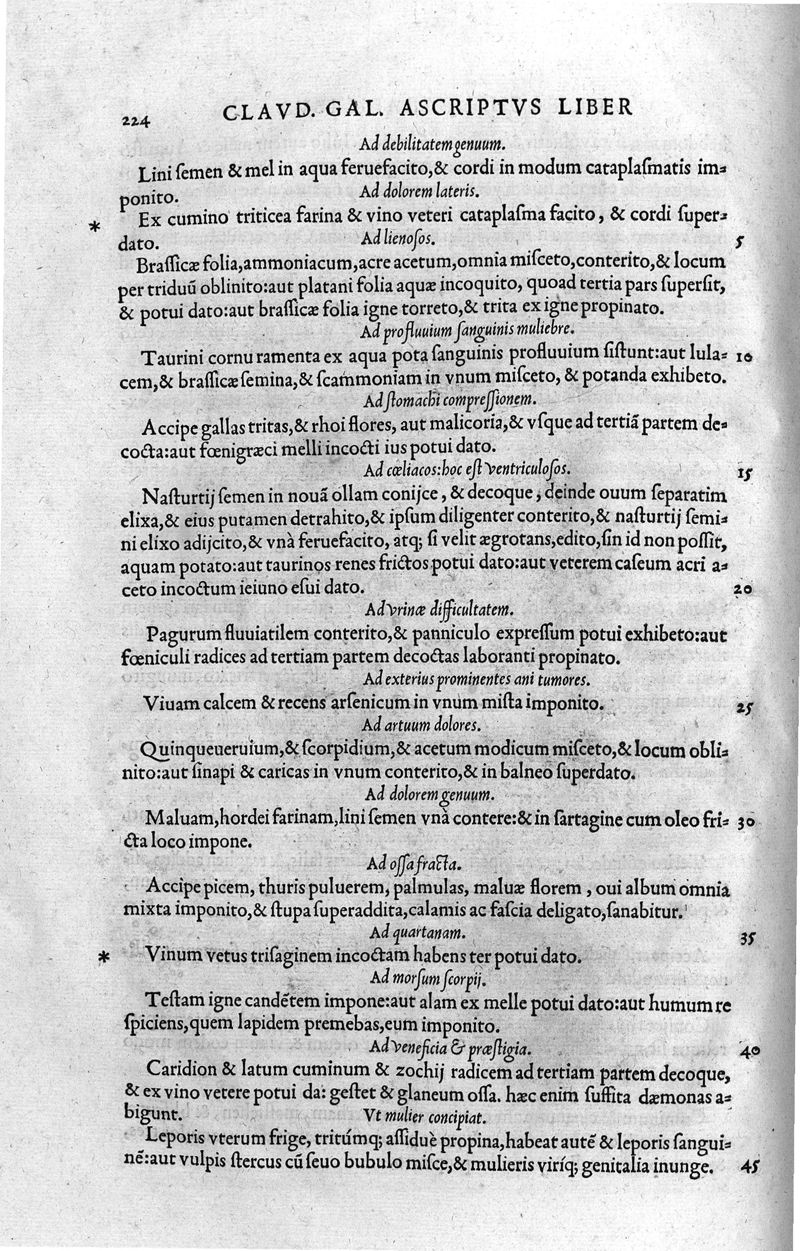 224 CLAVD. GAL. ASCRIPTVS LIBER
Ad debilitatem genuum.
Lini ſemen & mel in aqua feruefacito,& cordi in modum cataplaſmatis im⸗
ponito. Ad dolorem lateris.
* Ex cumino triticea farina & vino veteri cataplaſma facito, & cordi ſuper⸗
dato. Ad lienoſos. 5
Braſſicæ folia,ammoniacum,acre acetum,omnia miſceto,conterito,& locum
per triduū oblinito:aut platani folia aquæ incoquito, quoad tertia pars ſuperſit,
& potui dato:aut braſſicæ folia igne torreto,& trita ex igne propinato.
Ad profluuium ſanguinis muliebre.
Taurini cornu ramenta ex aqua pota ſanguinis profluuium ſiſtunt:aut lula⸗ 10
cem,& braſſicæ ſemina,& ſcammoniam in vnum miſceto, & potanda exhibeto.
Ad ſtomachi compreſſionem.
Accipe gallas tritas,& rhoi flores, aut malicoria,& vſque ad tertiã partem de⸗
cocta:aut fœnigræci melli incocti ius potui dato.
Ad cœliacos:hoc eſt ventriculoſos. 15
Naſturtij ſemen in nouã ollam conijce, & decoque, deinde ouum ſeparatim
elixa,& eius putamen detrahito,& ipſum diligenter conterito,& naſturtij ſemi⸗
ni elixo adijcito,& vnà feruefacito, atq; ſi velit ægrotans,edito,ſin id non poſſit,
aquam potato:aut taurinos renes frictos potui dato:aut veterem caſeum acri a⸗
ceto incoctum ieiuno eſui dato. 20
Ad vrinæ difficultatem.
Pagurum fluuiatilem conterito,& panniculo expreſſum potui exhibeto:aut
fœniculi radices ad tertiam partem decoctas laboranti propinato.
Ad exterius prominentes ani tumores.
Viuam calcem & recens arſenicum in vnum miſta imponito. 25
Ad artuum dolores.
Quinqueueruium,& ſcorpidium,& acetum modicum miſceto,& locum obli⸗
nito:aut ſinapi & caricas in vnum conterito,& in balneo ſuperdato.
Ad dolorem genuum.
Maluam,hordei farinam,lini ſemen vnà contere:& in ſartagine cum oleo fri⸗ 30
cta loco impone.
Ad oſſa fracta.
Accipe picem, thuris puluerem, palmulas, maluæ florem, oui album omnia
mixta imponito,& ſtupa ſuperaddita,calamis ac faſcia deligato,ſanabitur.
Ad quartanam. 35
* Vinum vetus triſaginem incoctam habens ter potui dato.
Ad morſum ſcorpij.
Teſtam igne candẽtem impone:aut alam ex melle potui dato:aut humum re
ſpiciens,quem lapidem premebas,eum imponito.
Ad veneficia & præſtigia. 40
Caridion & latum cuminum & zochij radicem ad tertiam partem decoque,
& ex vino vetere potui da: geſtet & glaneum oſſa. hæc enim ſuffita dæmonas a⸗
bigunt. Vt mulier concipiat.
Leporis vterum frige, tritúmq; aſſiduè propina,habeat autẽ & leporis ſangui⸗
nẽ:aut vulpis ſtercus cũ ſeuo bubulo miſce,& mulieris viríq; genitalia inunge. 45